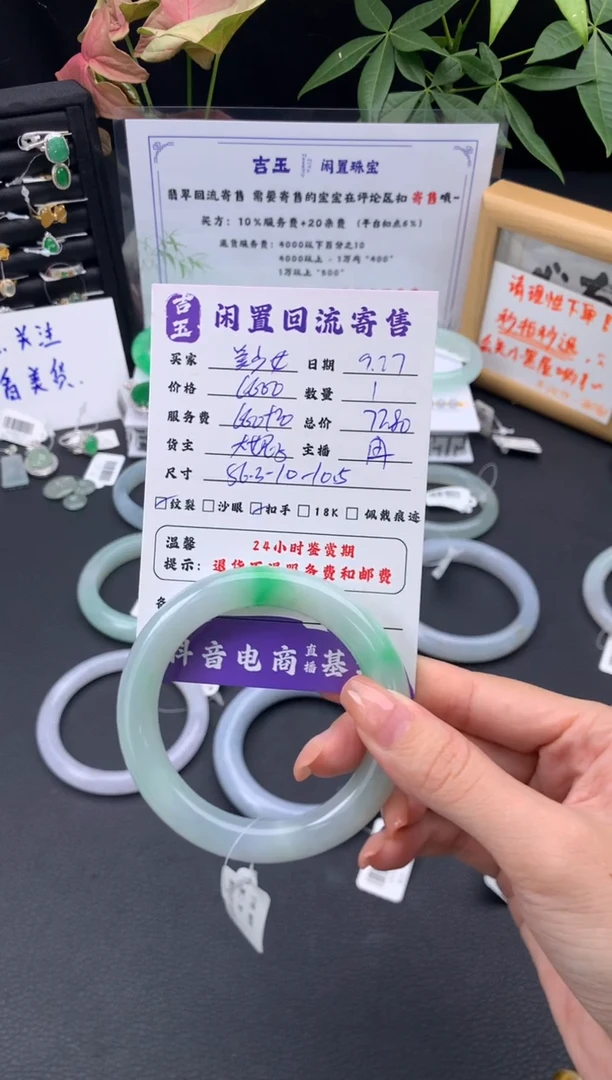 吉玉 闲置珠宝
翡翠回流寄售 需要寄售的宝宝在评论区扣 寄售哦~
买方：10%服务费+20杂费 (平台扣点6%)
退货服务费：4000以下百分之10
4000以上 - 1万内 "400"
1万以上 "500"
请理性下单！
秒拍秒退，
关注
吉玉 闲置回流寄售
买家 美少女 日期 9.27
价格 6600 数量 1
服务费 660+20 总价 7280
货主 主播
尺寸 56.3-10-10.5
☑纹裂 □沙眼 ☑扣手 □18K □佩戴痕迹
温馨 24小时鉴赏期
提示：退货不退服务费和邮费
抖音电商直播基